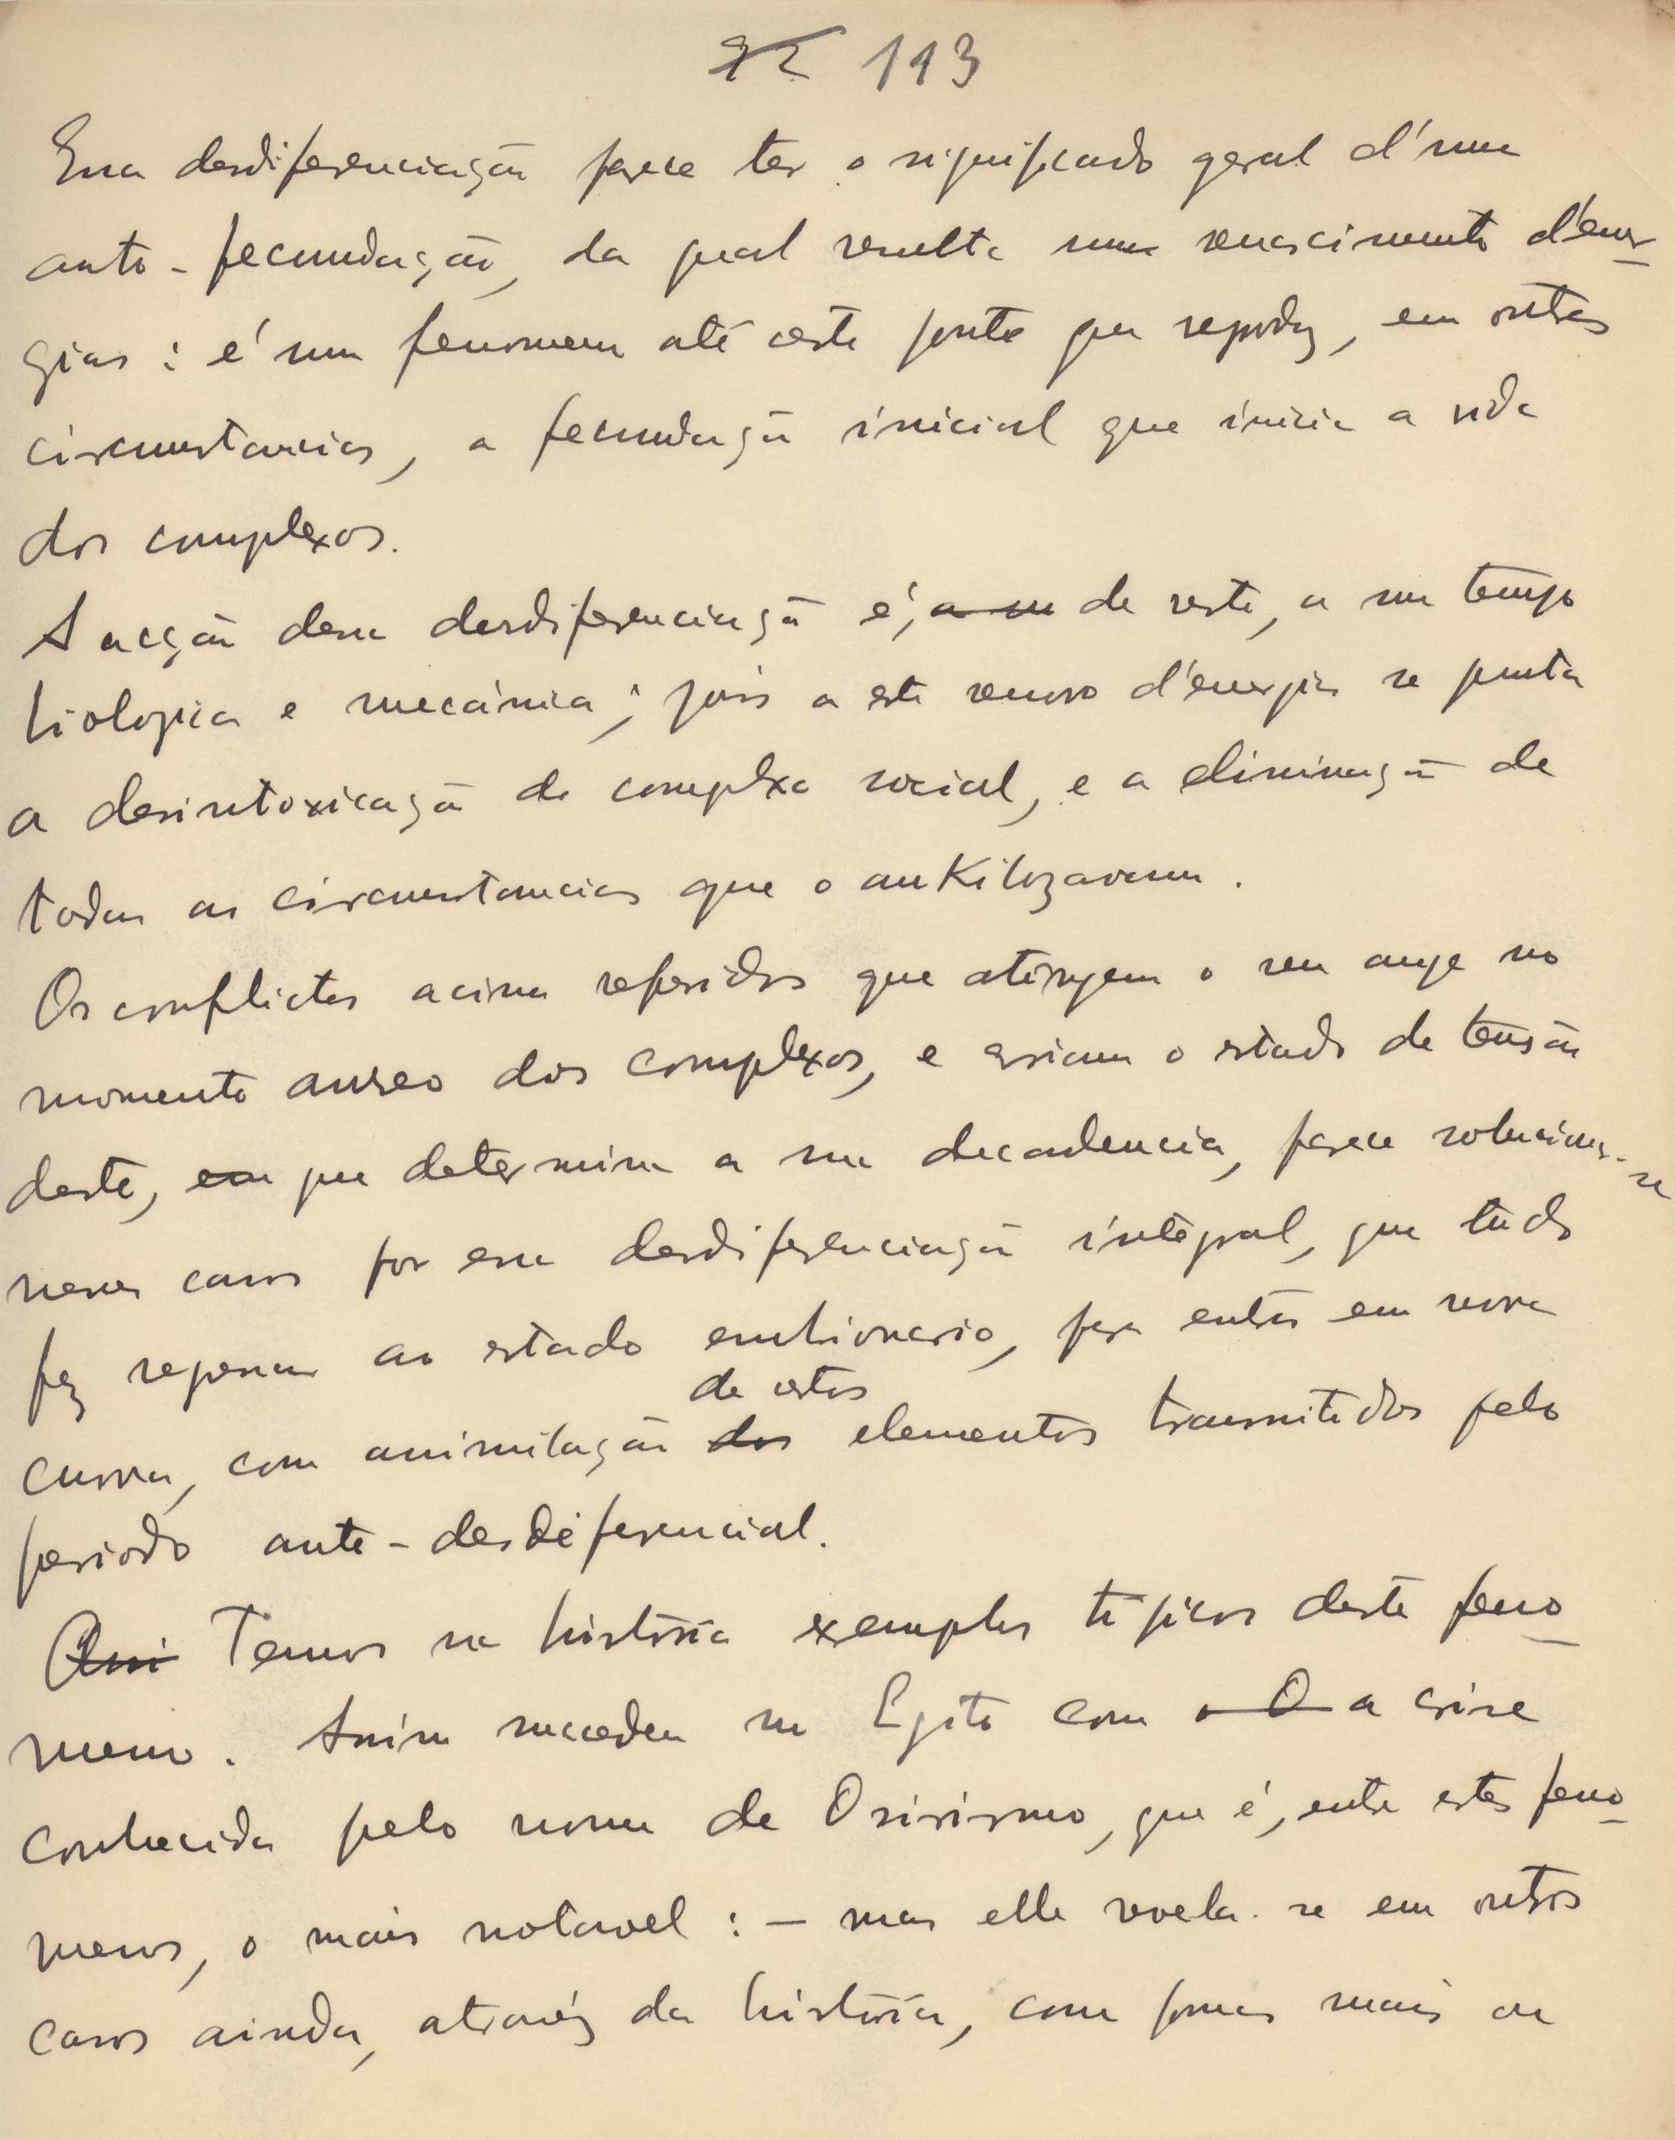 113
Essa desdiferenciação parece ter o significado geral d'uma
auto-fecundação, da qual resulta um renascimento d'ener-
gias: é um fenomeno até certo ponto que reproduz, em outras
circumstancias, a fecundação inicial que inicia a vida
dos complexos.
A acção dessa desdiferenciação é, de resto, a um tempo
biologica e mecánica; pois a este renovo d'energia se junta
a desintoxicação do complexo social, e a eliminação de
todas as circumstancias que o ankilozavam.
Os conflictos acima referidos que atingem o seu auge no
momento aureo dos complexos, e criam o estado de tensão
deste, que determina a sua decadencia, parece solucionar-se
nesses casos por essa desdiferenciação integral, que tudo
faz regressar ao estado embrionario, para entrar em nova
curva, com assimilação de certos elementos transmitidos pelo
periodo ante-desdiferencial.
Temos na história exemplos típicos deste feno-
meno. Assim succedeu no Egito com a crise
conhecida pelo nome de Osirismo, que é, entre estes feno-
menos, o mais notavel: — mas elle revela-se em outros
casos ainda, atravéz da história, com formas mais ou